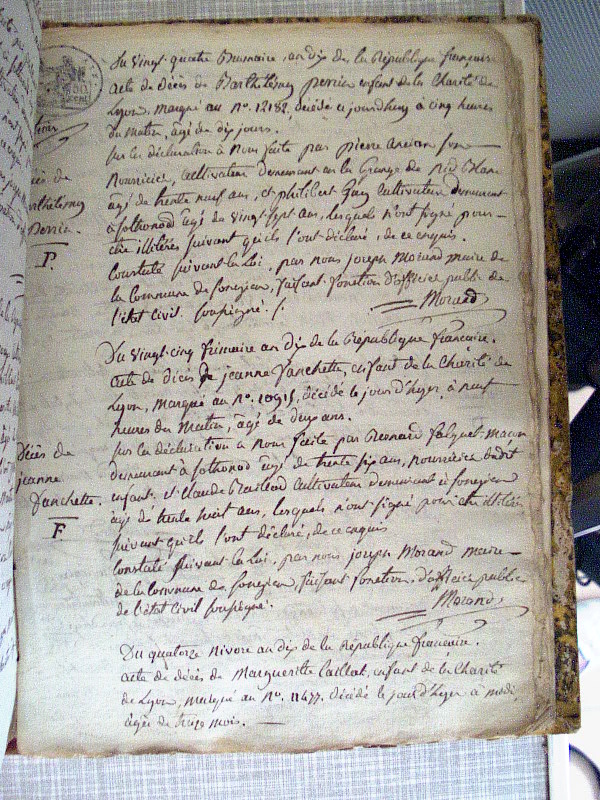 Du vingt quatre Brumaire, an dix de la République française
acte de décès de Barthélémy perrin enfant de la Charité de
Lyon, marqué au N°. 12182, décédé ce jourd'huy à cinq heures
du matin, âgé de dix jours.
sur la déclaration à nous faite par pierre
Nourricier, cultivateur demeurant en la Grange de
âgé de trente neuf ans, et philibert Guy cultivateur demeurant
à sothonod âgé de vingt sept ans, lesquels n'ont signé pour
être illiterés suivant qu'ils l'ont déclaré, de ce enquis.
Constaté suivant la Loi, par nous joseph Morand maire de
la Commune de songieu, faisant fonction d'officier public de
l'état civil soussigné. /.
Morand
décès de
Barthélémy
Perrin.
P.
Du vingt cinq frimaire an dix de la République française.
acte de décès de jeanne fanchette, enfant de la Charité de
Lyon, marqué au N°. 10915, décédé le jour d'hyer à neuf
heures du Matin, âgé de deux ans.
sur la déclaration à nous faite par Bernard falquet maçon
demeurant à sothonod âgé de trente six ans, nourricier dudit
enfant, et Claude cultivateur demeurant à songieu
âgé de trente huit ans, lesquels n'ont signé pour être illiterés
suivant qu'ils l'ont déclaré, de ce enquis
Constaté suivant la Loi, par nous joseph Morand maire
de la Commune de songieu faisant fonction d'officier public
de l'état civil soussigné.
Morand
Décès de
jeanne
fanchette.
F.
Du quatorze nivose an dix de la République française.
acte de décès de Margueritte Caillat, enfant de la Charité
de Lyon, marqué au N°. 11477. décédé le jour d'hyer à midi
âgée de treize mois.